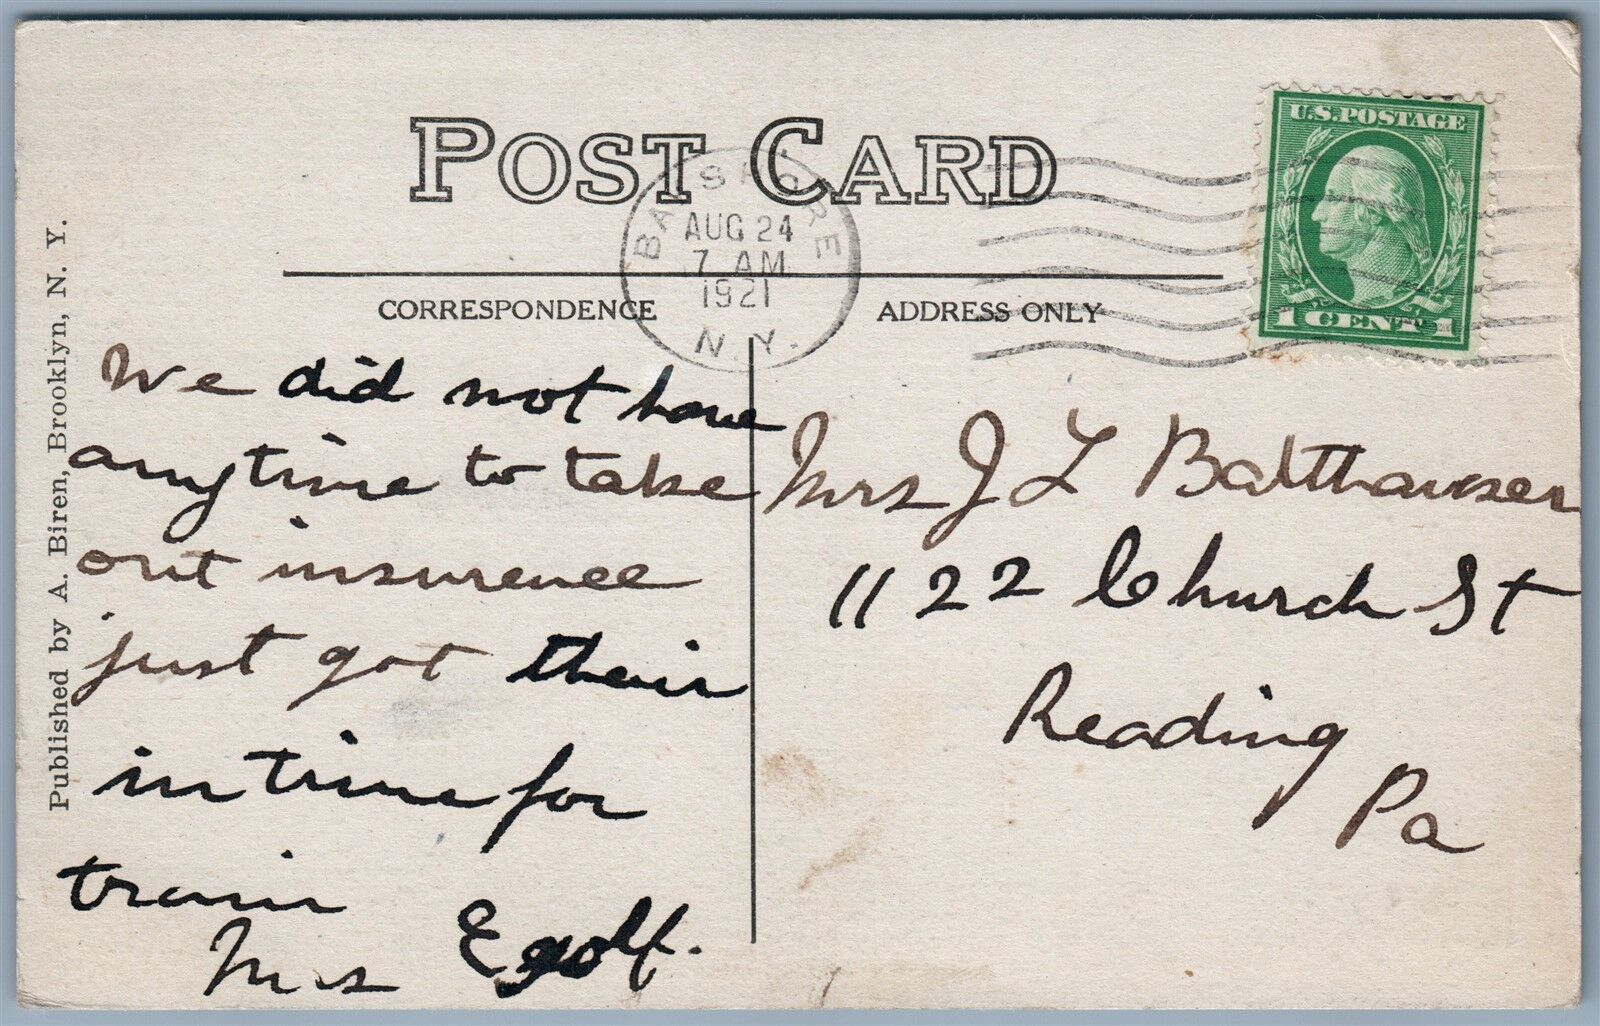 POST CARD
U.S. POSTAGE
1 CENT 1
BAY SHORE
AUG 24
7 AM
1921
N.Y.
CORRESPONDENCE
ADDRESS ONLY
Published by A. Biren, Brooklyn, N. Y.
We did not have
anytime to take
out insurence
just got their
in time for
train
Mrs Egolf.
Mrs J L Balthauser
1122 Church St
Reading
Pa